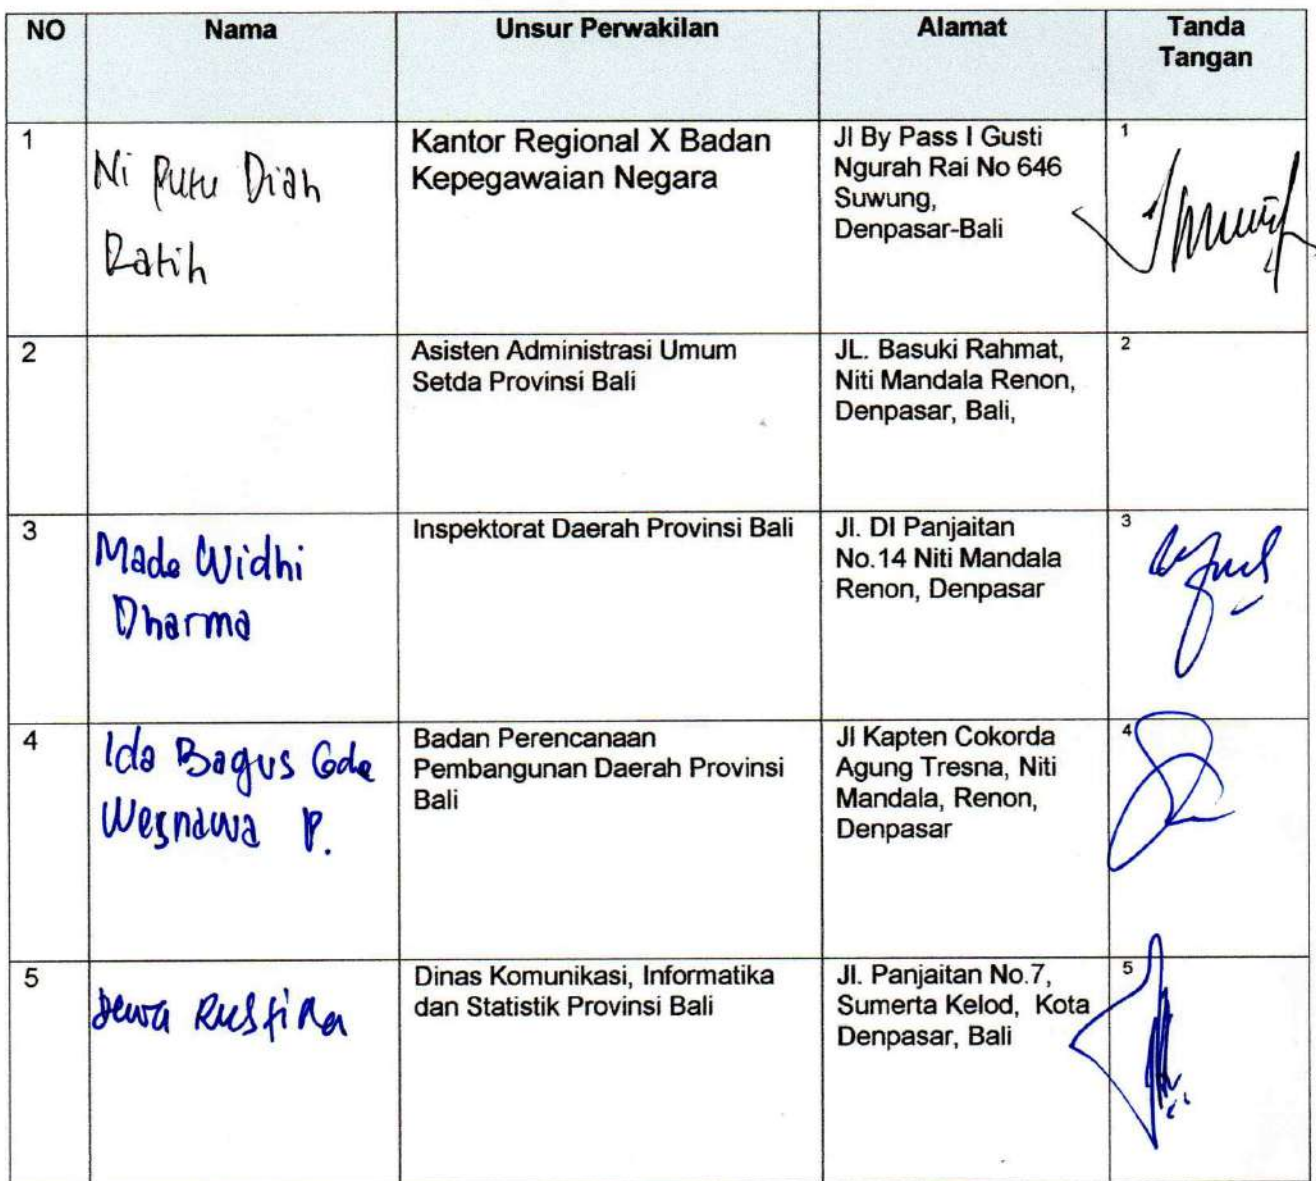 NO Nama Unsur Perwakilan Alamat Tanda
Tangan
1 Ni Putu Diah
Ratih
Kantor Regional X Badan
Kepegawaian Negara
Jl By Pass I Gusti
Ngurah Rai No 646
Suwung,
Denpasar-Bali
1
2
Asisten Administrasi Umum
Setda Provinsi Bali
JL. Basuki Rahmat,
Niti Mandala Renon,
Denpasar, Bali,
2
3 Made Widhi
Dharma
Inspektorat Daerah Provinsi Bali
Jl. DI Panjaitan
No.14 Niti Mandala
Renon, Denpasar
3
4 Ida Bagus Gde
Wesnawa P.
Badan Perencanaan
Pembangunan Daerah Provinsi
Bali
Jl Kapten Cokorda
Agung Tresna, Niti
Mandala, Renon,
Denpasar
4
5 Dewa
Dinas Komunikasi, Informatika
dan Statistik Provinsi Bali
Jl. Panjaitan No.7,
Sumerta Kelod, Kota
Denpasar, Bali
5